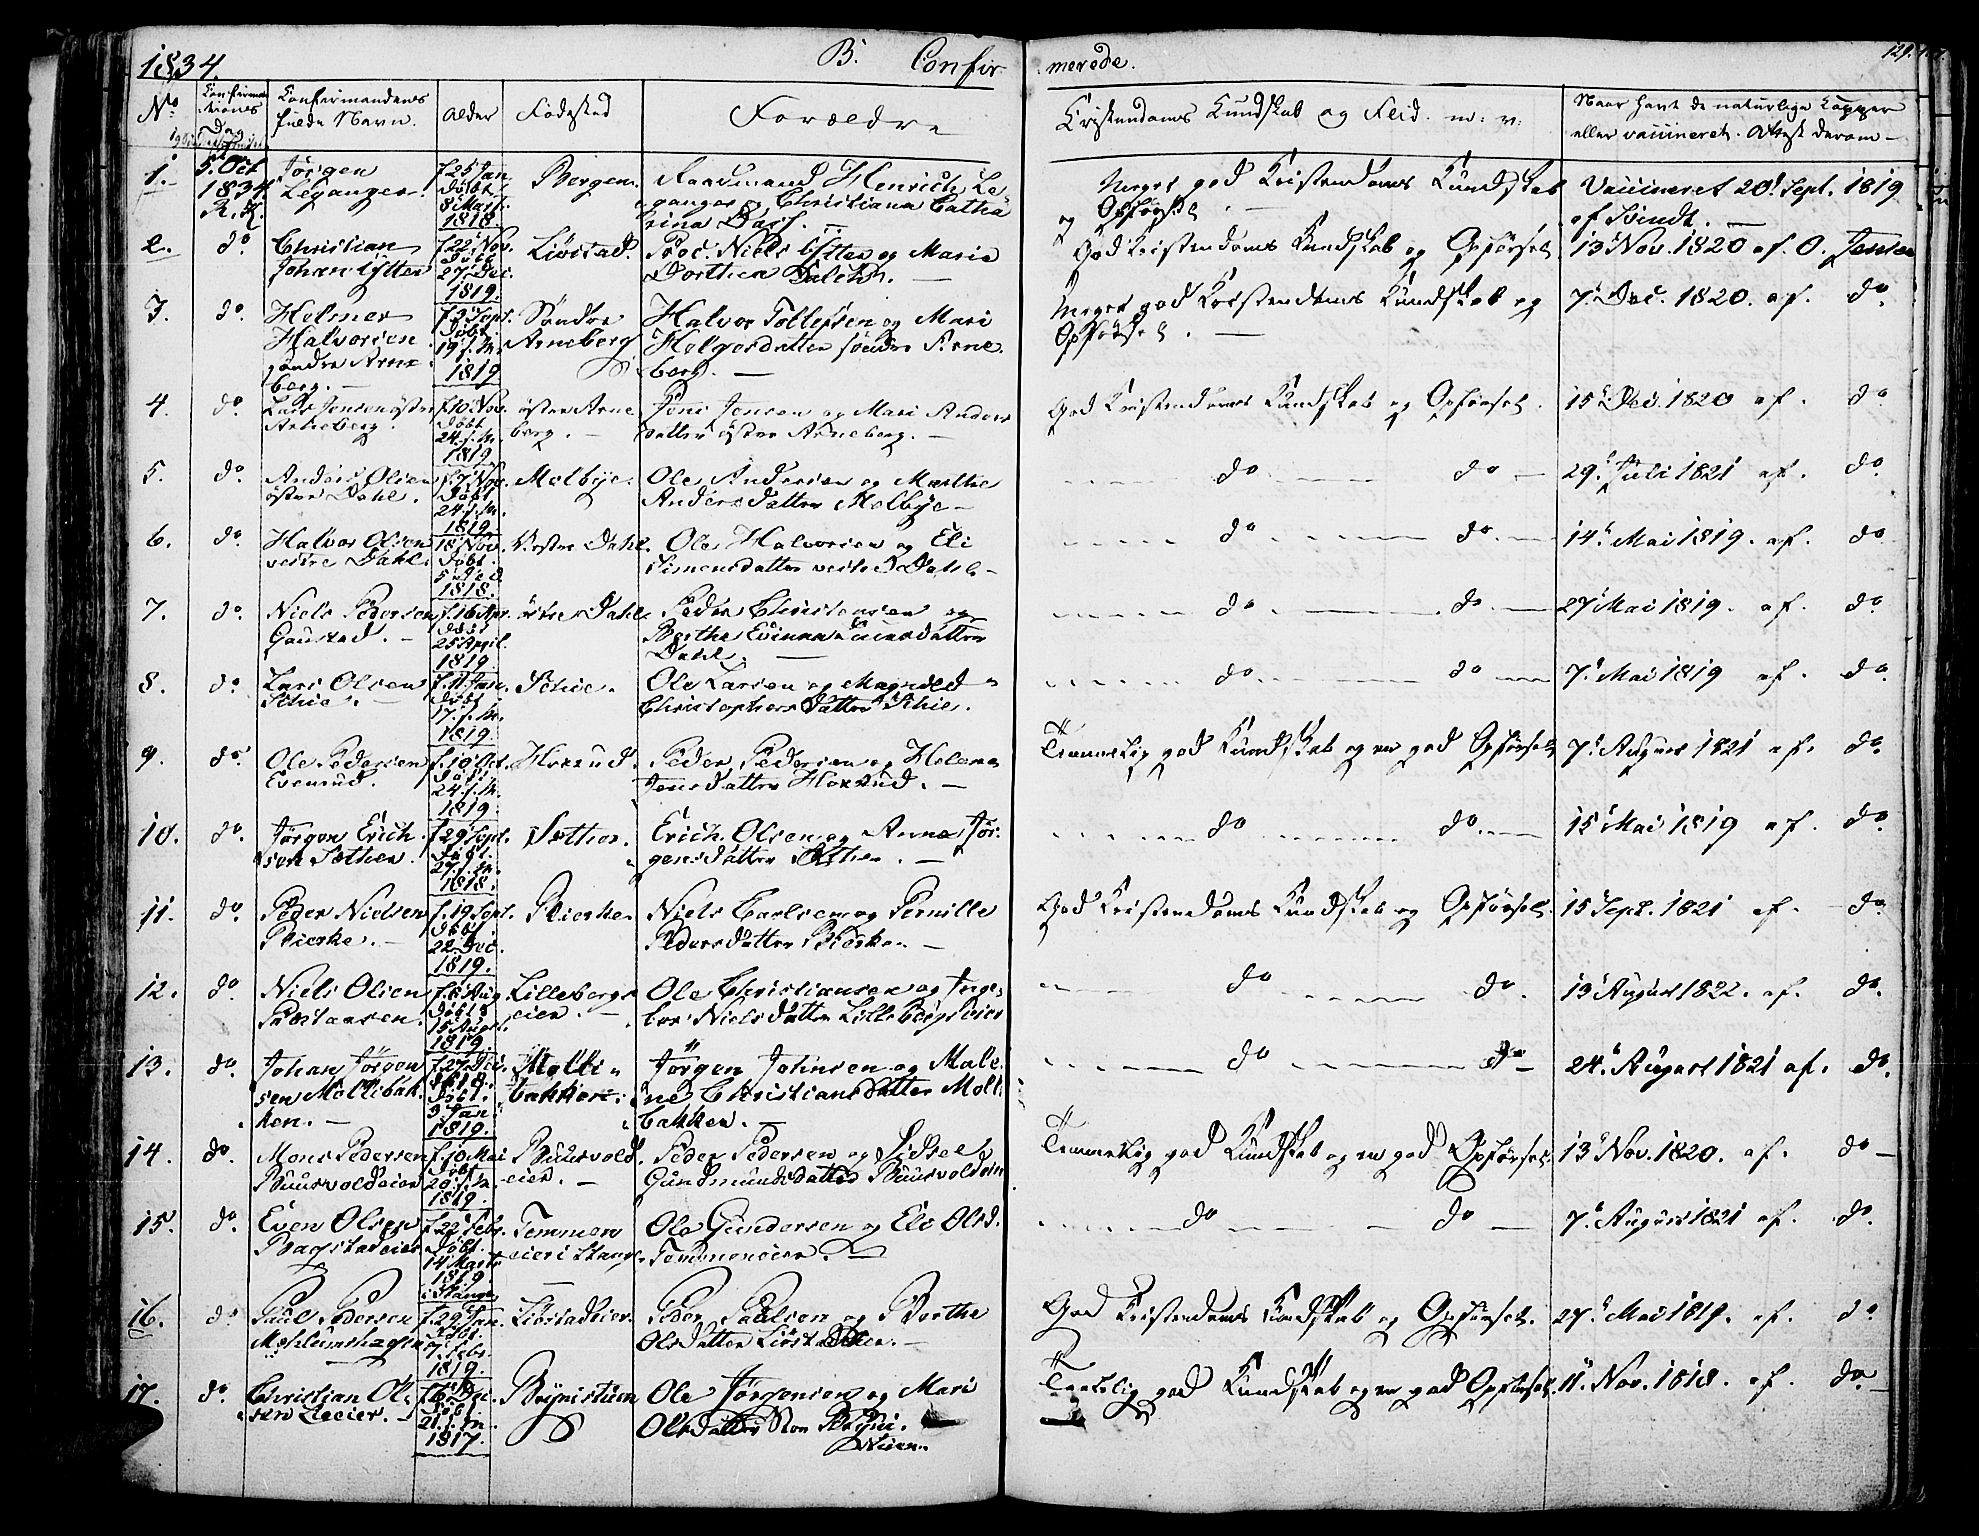 1834.
B. Confirmerede.
129.
No
Confirmationens Dag
Confirmandens fulde Navn.
Alder
Fødested
Forældre
Kristendoms Kundskab og Flid. m: v:
Naar havt de naturlige Kopper eller vaccineret. Attest derom
1. 5. Oct 1834 R. K. Jørgen Leganger f. 25 Jan døbt 8 Mart. 1818 Bergen. Raadmand Henrich Leganger og Christiana Catharina Dass. Meget god Kristendoms Kundskab og Opførsel Vaccineret 20. Sept. 1819 af
2. do. Christian Johan Lytter f. 22 Nov. døbt 27 Dec. 1819. Liøstad. Proc. Niels Lytter og Marie Dorthea God Kristendoms Kundskab og Opførsel 13 Nov. 1820 af O. Jensen
3. do. Helmer Halvorsen søndre Arneberg. f. 2 Sept. døbt 19 s. M. 1819 Søndre Arneberg Halvor Tollefsen og Mari Helgesdatter søndre Arneberg. Meget god Kristendoms Kundskab og Opførsel. 7. Dec. 1820. af. do
4. do. Lars Jensen østre Arneberg. f. 10 Nov. døbt 24. s. M. 1819 østre Arneberg. Jens Jensen og Mari Andersdatter østre Arneberg. God Kristendoms Kundskab og Opførsel. 15 Dec. 1820 af. do
5. do. Anders Olsen østre Dahl. f. 7 Nov. døbt 24. s. M. 1819. Molbye. Ole Andersen og Marthe Andersdatter Molbye do do 29. Juli 1821 af. do
6. do. Halvor Olsen vestre Dahl. 18 Nov. døbt. 5 Dec 1818. Vestre Dahl. Ole Halvorsen og Eli Simensdatter vestre Dahl do do. 14. Mai 1819. af. do
7. do. Niels Pedersen Gaustad. f. 16 Apr. døbt 25 April. 1819. østre Dahl Peder Christensen og Berthe Dahl. do. do. 27 Mai 1819. af. do.
8. do. Lars Olsen Schie. f. 11 Jan. døbt 17. s. M. 1819. Schie. Ole Larsen og Magnild Christophersdatter Schie. do. do 7. Mai 1819 af. do.
9. do. Ole Pedersen Evensrud. f. 10 Oct. døbt 24. s. M. 1819. Horsrud. Peder Pedersen og Helene Jensdatter Horsrud. Temmelig god Kundskab og en god Opførsel 7. August 1821 af. do.
10. do. Jørgen Erichsen Sæther. f. 29 Sept. døbt. 27. s. M. 1818. Sæther. Erich Olsen og Anne Jørgensdatter Sæther. do do. 15 Mai 1819 af. do.
11. do. Peder Nielsen Plierke. f. 19 Sept. døbt. 22 Dec. 1819. Plierke. Niels Carlsen og Pernille Pedersdatter God Kristendoms Kundskab og Opførsel. 15 Sept. 1821 af. do.
12. do. Niels Olsen f. 8 Aug døbt 15 Aug. 1819. Lillebergseier. Ole Christiansen og Ingebor Nielsdatter Lillebergseier do do. 13 August 1822. af. do.
13. do. Johan Jørgensen Mollibakken. f. 27. Dec. 1818. døbt. 3 Jan. 1819. Mollibakken. Jørgen Johnsen og Malene Christiansdatter Mollibakken. do do 24. August 1821 af. do.
14. do. Mons Pedersen Buusvoldeier f. 10 Mai døbt 20. s. M. 1819. Buusvoldeier. Peder Pedersen og Sidsel Gundmundsdatter Buusvoldeier Temmelig god Kundskab og en god Opførsel. 13 Nov. 1820. af. do
15. do. Even Olsen Bagstadeier f. 22 Febr. døbt. 14 Marts 1819. i Stange Temmeneier i Stange. Ole Gundersen og Eli Olsd. Temmeneier. do do 7. August 1821 af. do.
16. do Paul Pedersen Mehlumshagen f. 29 Jan. døbt. 7. Febr. 1819. Liøstadeier. Peder Paulsen og Berthe Olsdatter Liøstadeier. God Kristendoms Kundskab og Opførsel. 27. Mai 1819. af. do
17. do Christian Olsen f. 16 Dec. døbt 21. s. M. 1817. Brynistuen Ole Jørgensen og Mari Olsdatter Stor god Kundskab og en god Opførsel. 11. Nov. 1818. af. do.